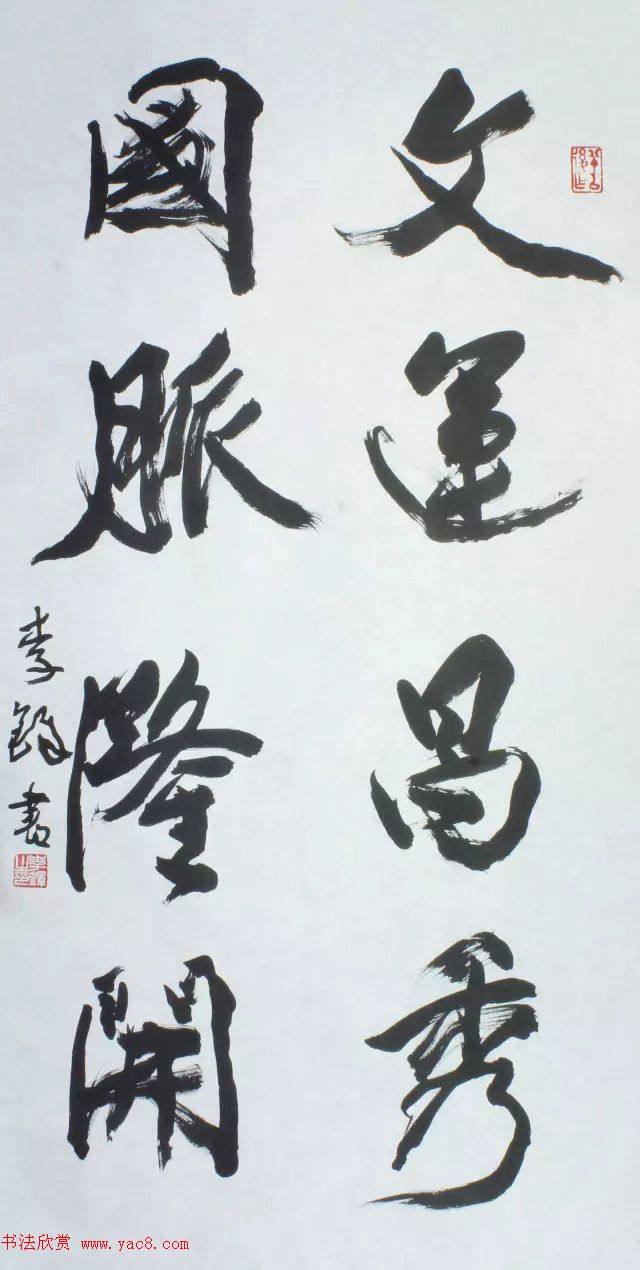 文運昌秀
國脈隆開
李鐸書
李鐸之印
书法欣赏 www.yac8.com